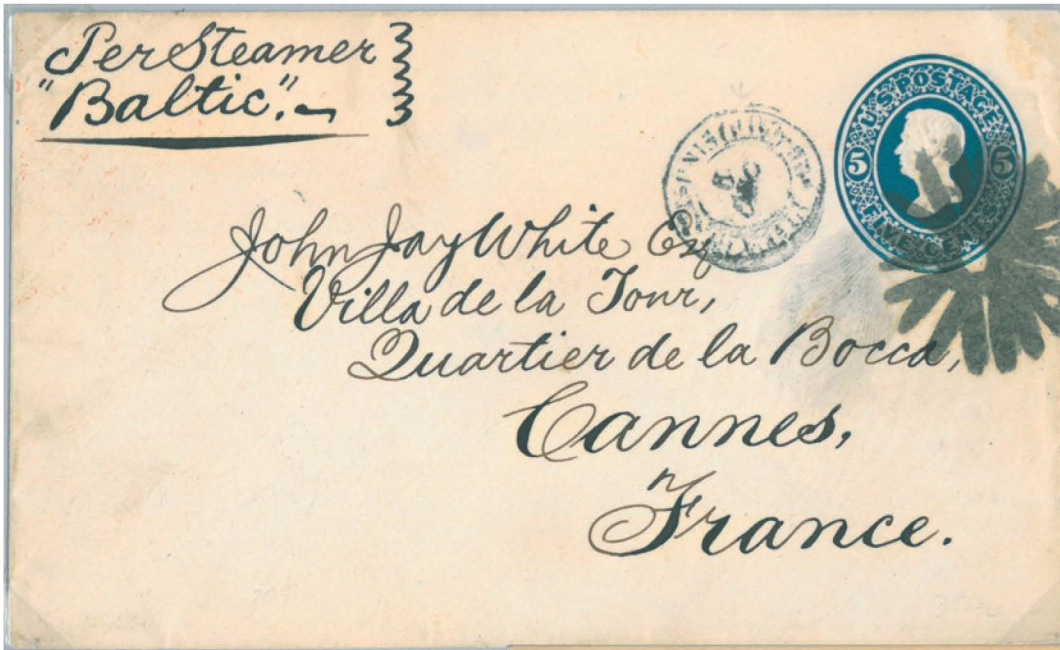 Per Steamer
"Baltic".
U.S. POSTAGE
5 5
FIVE CENTS
John Jay White Esq
Villa de la Tour,
Quartier de la Bocca,
Cannes,
France.